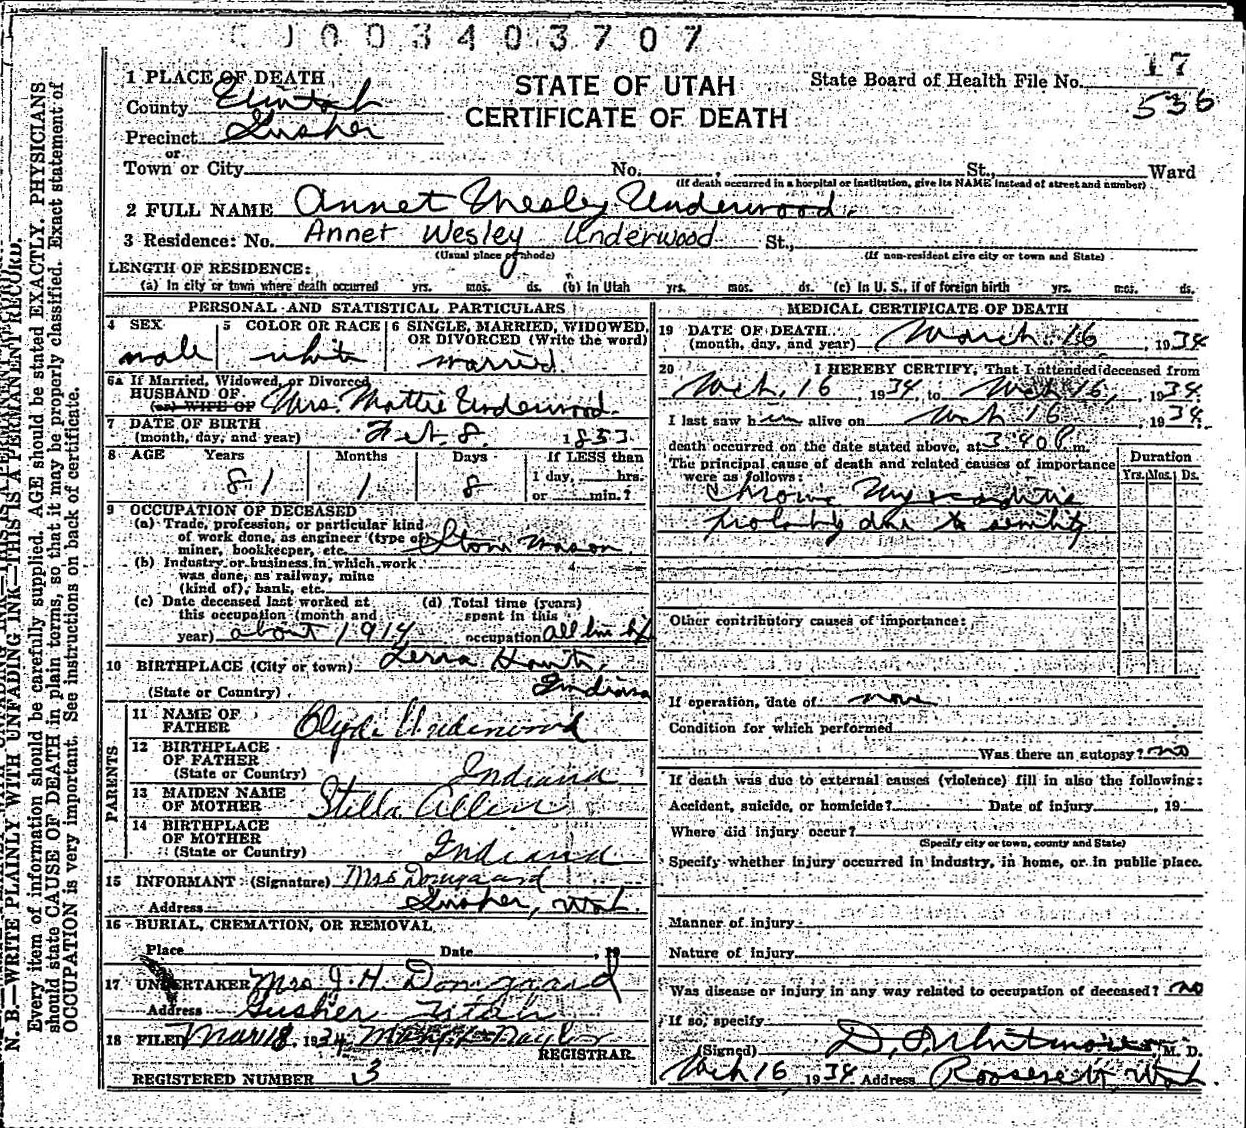 0 0 3 4 0 3 7 0 7
STATE OF UTAH
CERTIFICATE OF DEATH
State Board of Health File No. 17
536
1 PLACE OF DEATH
County Uintah
Precinct Gusher
or
Town or City No. , St., Ward
(If death occurred in a hospital or institution, give its NAME instead of street and number)
2 FULL NAME Annet Wesley Underwood.
3 Residence: No. Annet Wesley Underwood St.,
(Usual place of abode) (If non-resident give city or town and State)
LENGTH OF RESIDENCE:
(a) In city or town where death occurred yrs. mos. ds. (b) In Utah yrs. mos. ds. (c) In U. S., if of foreign birth yrs. mos. ds.
PERSONAL AND STATISTICAL PARTICULARS
4 SEX male
5 COLOR OR RACE white
6 SINGLE, MARRIED, WIDOWED, OR DIVORCED (Write the word) married.
6a If Married, Widowed, or Divorced
HUSBAND OF
(or) WIFE OF Mrs. Mattie Underwood.
7 DATE OF BIRTH
(month, day, and year) Feb 8. 1853
8 AGE Years Months Days If LESS than
81 1 8 1 day, hrs.
or min.?
9 OCCUPATION OF DECEASED
(a) Trade, profession, or particular kind
of work done, as engineer (type of
miner, bookkeeper, etc. Stone mason
(b) Industry or business in which work
was done, as railway, mine
(kind of), bank, etc.
(c) Date deceased last worked at
this occupation (month and
year) about 1914
(d) Total time (years)
spent in this
occupation all his life
10 BIRTHPLACE (City or town) Terra Haute,
(State or Country) Indiana
PARENTS
11 NAME OF
FATHER Clyde Underwood
12 BIRTHPLACE
OF FATHER
(State or Country) Indiana
13 MAIDEN NAME
OF MOTHER Stella Allen
14 BIRTHPLACE
OF MOTHER
(State or Country) Indiana
15 INFORMANT (Signature) Mrs Domgaard
Address Gusher, Utah.
16 BURIAL, CREMATION, OR REMOVAL
Place Date , 19
17 UNDERTAKER Mrs J. H. Domgaard
Address Gusher Utah
18 FILED Mar 18, 1934
REGISTRAR
REGISTERED NUMBER 3
MEDICAL CERTIFICATE OF DEATH
19 DATE OF DEATH
(month, day, and year) March 16, 1934
20 I HEREBY CERTIFY, That I attended deceased from
Mch, 16, 1934, to Mch 16, 1934.
I last saw him alive on Mch 16, 1934.
death occurred on the date stated above, at 3:40 P m.
The principal cause of death and related causes of importance
were as follows:
Duration
Yrs. Mos. Ds.
Chronic Myocarditis
probably due to senility
Other contributory causes of importance:
If operation, date of none
Condition for which performed
Was there an autopsy? no
If death was due to external causes (violence) fill in also the following:
Accident, suicide, or homicide? Date of injury , 19
Where did injury occur?
(Specify city or town, county and State)
Specify whether injury occurred in industry, in home, or in public place.
Manner of injury
Nature of injury
Was disease or injury in any way related to occupation of deceased? no
If so, specify
(Signed) M. D.
Mch 16, 1934 Address Roosevelt, Utah.
N. B.—WRITE PLAINLY WITH UNFADING INK—THIS IS A PERMANENT RECORD.
Every item of information should be carefully supplied. AGE should be stated EXACTLY. PHYSICIANS
should state CAUSE OF DEATH in plain terms, so that it may be properly classified. Exact statement of
OCCUPATION is very important. See instructions on back of certificate.